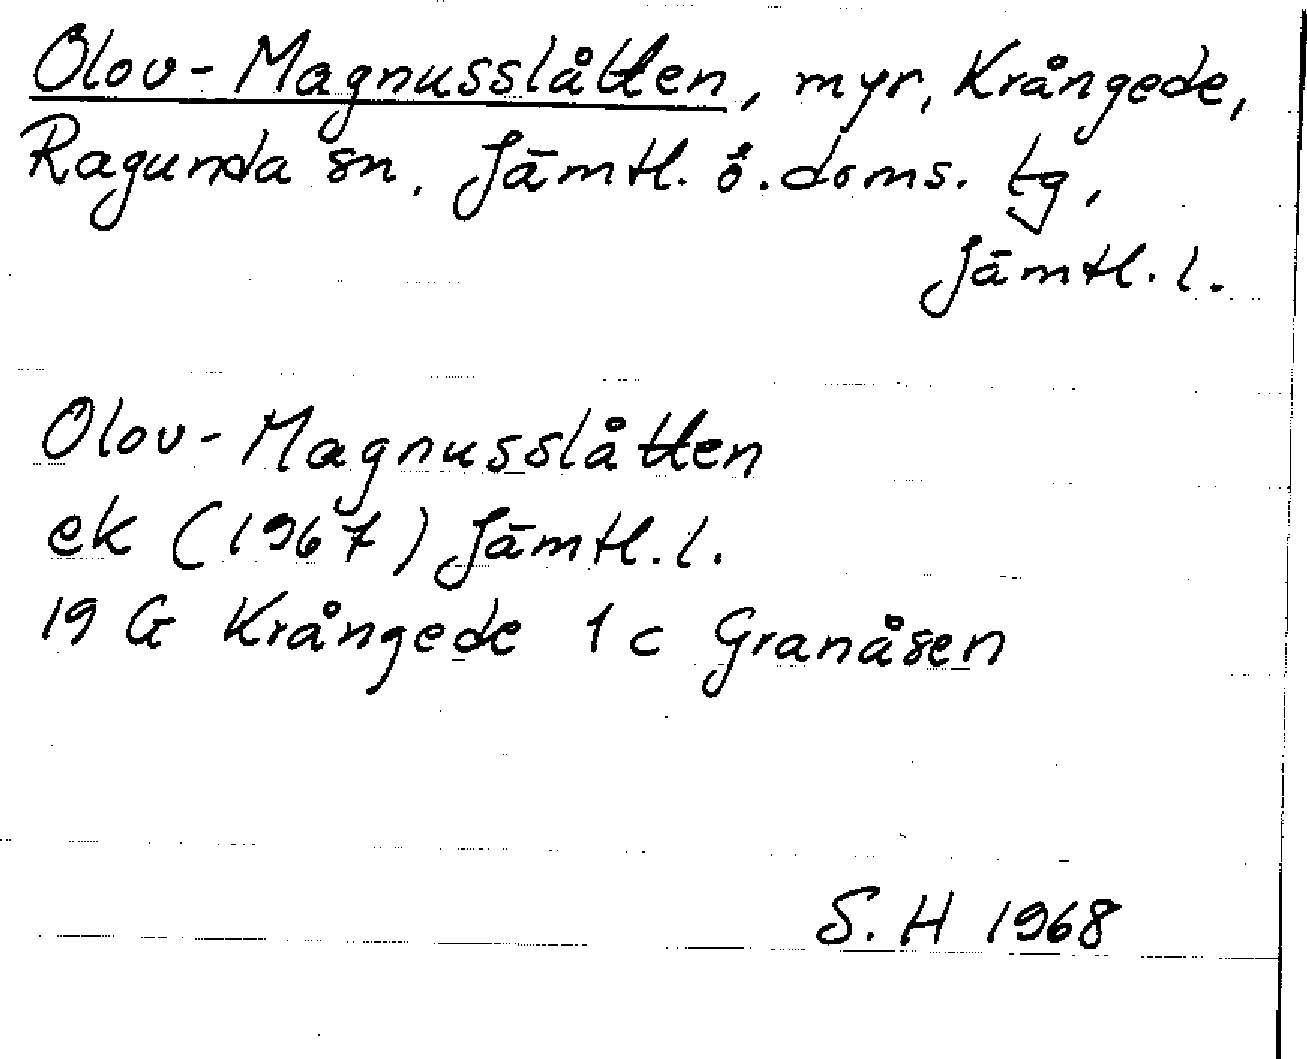 Olov-Magnusslåtten, myr, Krångede,
Ragunda sn. Jämtl. ö. doms. tg,
Jämtl. l.
Olov-Magnusslåtten
ek (1967) Jämtl. l.
19 G Krångede 1 c Granåsen
S. H 1968